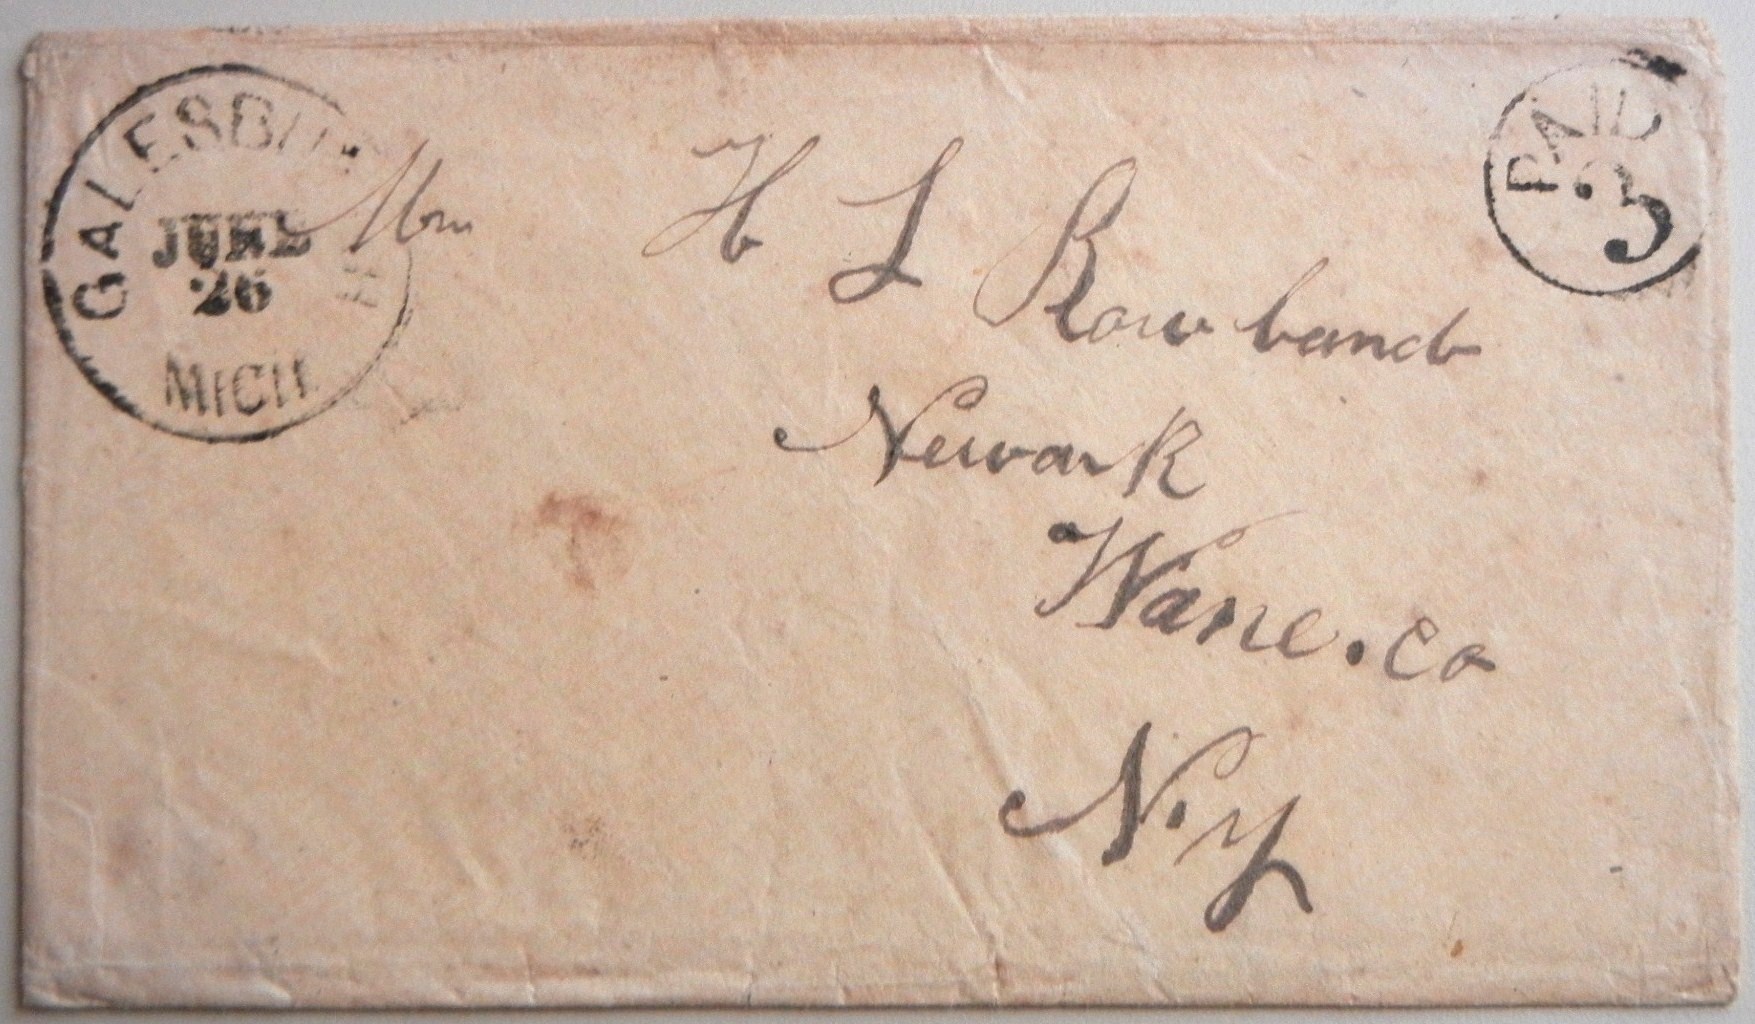 GALESBURGH
JUNE
26
MICH
PAID
3
Mm H L Rowland
Newark
Wane.co
N.y